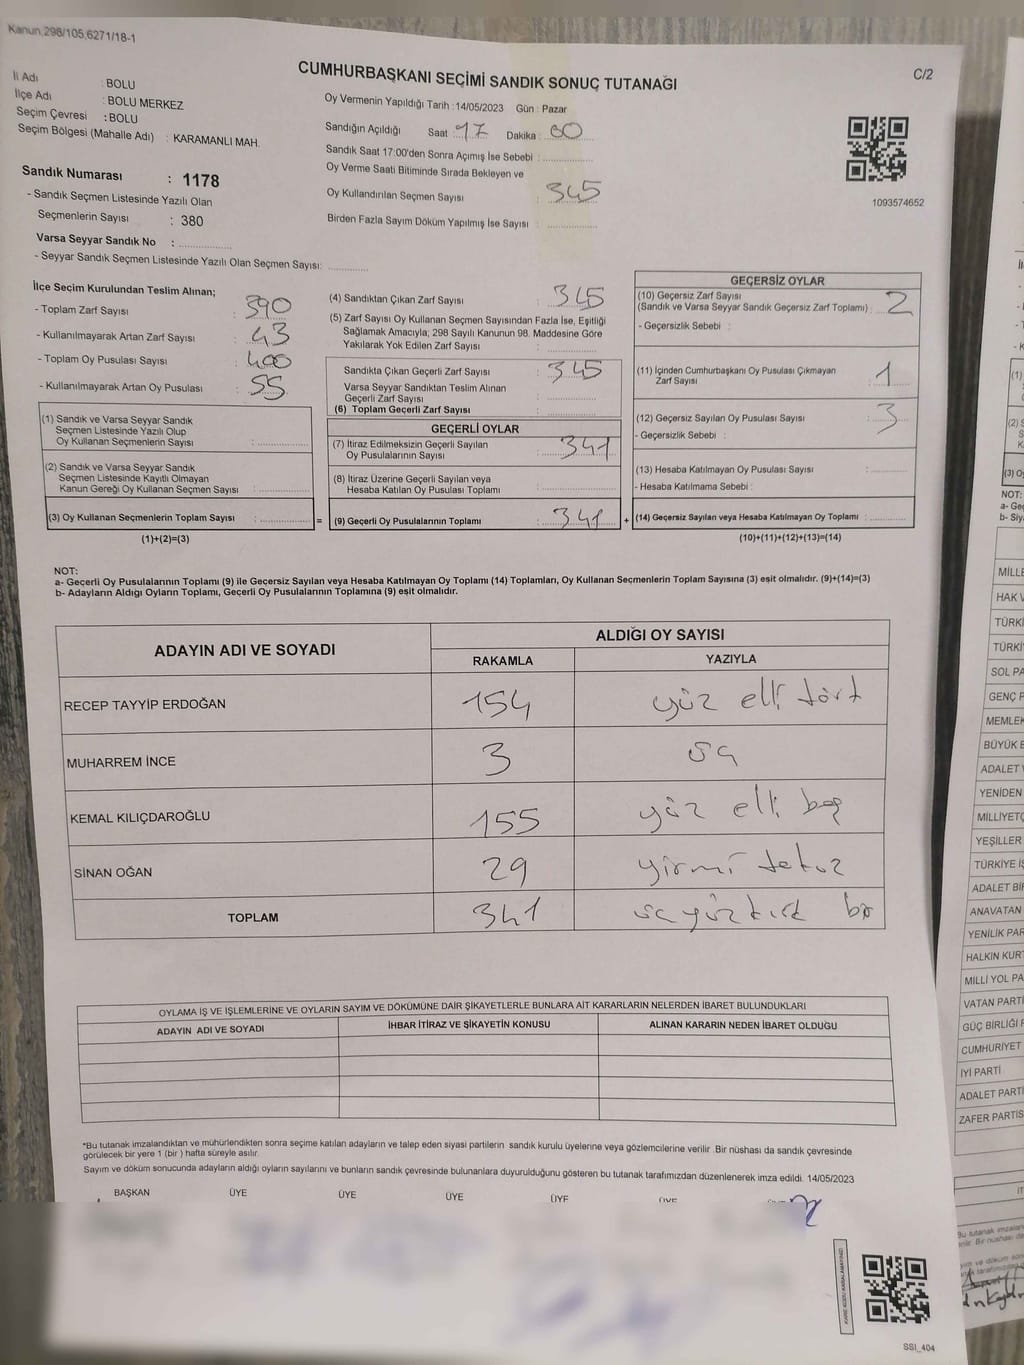 Kanun,298/105,6271/18-1
C/2
CUMHURBAŞKANI SEÇİMİ SANDIK SONUÇ TUTANAĞI
İl Adı : BOLU
İlçe Adı : BOLU MERKEZ
Seçim Çevresi : BOLU
Seçim Bölgesi (Mahalle Adı) : KARAMANLI MAH.
Oy Vermenin Yapıldığı Tarih :14/05/2023 Gün : Pazar
Sandığın Açıldığı Saat : 17 Dakika : 00
Sandık Saat 17:00'den Sonra Açımış İse Sebebi :
Oy Verme Saati Bitiminde Sırada Bekleyen ve
Oy Kullandırılan Seçmen Sayısı : 345
Birden Fazla Sayım Döküm Yapılmış İse Sayısı :
1093574652
Sandık Numarası : 1178
- Sandık Seçmen Listesinde Yazılı Olan
Seçmenlerin Sayısı : 380
Varsa Seyyar Sandık No :
- Seyyar Sandık Seçmen Listesinde Yazılı Olan Seçmen Sayısı:
İlçe Seçim Kurulundan Teslim Alınan;
- Toplam Zarf Sayısı : 390
- Kullanılmayarak Artan Zarf Sayısı : 43
- Toplam Oy Pusulası Sayısı : 400
- Kullanılmayarak Artan Oy Pusulası : 55
(1) Sandık ve Varsa Seyyar Sandık
Seçmen Listesinde Yazılı Olup
Oy Kullanan Seçmenlerin Sayısı :
(2) Sandık ve Varsa Seyyar Sandık
Seçmen Listesinde Kayıtlı Olmayan
Kanun Gereği Oy Kullanan Seçmen Sayısı :
(3) Oy Kullanan Seçmenlerin Toplam Sayısı :
(1)+(2)=(3)
(4) Sandıktan Çıkan Zarf Sayısı : 345
(5) Zarf Sayısı Oy Kullanan Seçmen Sayısından Fazla İse, Eşitliği
Sağlamak Amacıyla; 298 Sayılı Kanunun 98. Maddesine Göre
Yakılarak Yok Edilen Zarf Sayısı :
Sandıkta Çıkan Geçerli Zarf Sayısı : 345
Varsa Seyyar Sandıktan Teslim Alınan
Geçerli Zarf Sayısı :
(6) Toplam Geçerli Zarf Sayısı :
GEÇERLİ OYLAR
(7) İtiraz Edilmeksizin Geçerli Sayılan
Oy Pusulalarının Sayısı : 341
(8) İtiraz Üzerine Geçerli Sayılan veya
Hesaba Katılan Oy Pusulası Toplamı :
= (9) Geçerli Oy Pusulalarının Toplamı : 341 +
GEÇERSİZ OYLAR
(10) Geçersiz Zarf Sayısı
(Sandık ve Varsa Seyyar Sandık Geçersiz Zarf Toplamı) : 2
- Geçersizlik Sebebi :
(11) İçinden Cumhurbaşkanı Oy Pusulası Çıkmayan
Zarf Sayısı : 1
(12) Geçersiz Sayılan Oy Pusulası Sayısı : 3
- Geçersizlik Sebebi :
(13) Hesaba Katılmayan Oy Pusulası Sayısı :
- Hesaba Katılmama Sebebi :
(14) Geçersiz Sayılan veya Hesaba Katılmayan Oy Toplamı :
(10)+(11)+(12)+(13)=(14)
NOT:
a- Geçerli Oy Pusulalarının Toplamı (9) ile Geçersiz Sayılan veya Hesaba Katılmayan Oy Toplamı (14) Toplamları, Oy Kullanan Seçmenlerin Toplam Sayısına (3) eşit olmalıdır. (9)+(14)=(3)
b- Adayların Aldığı Oyların Toplamı, Geçerli Oy Pusulalarının Toplamına (9) eşit olmalıdır.
ADAYIN ADI VE SOYADI ALDIĞI OY SAYISI
RAKAMLA YAZIYLA
RECEP TAYYİP ERDOĞAN 154 yüz elli dört
MUHARREM İNCE 3 üç
KEMAL KILIÇDAROĞLU 155 yüz elli beş
SİNAN OĞAN 29 yirmi dokuz
TOPLAM 341 üçyüzkırk bir
OYLAMA İŞ VE İŞLEMLERİNE VE OYLARIN SAYIM VE DÖKÜMÜNE DAİR ŞİKAYETLERLE BUNLARA AİT KARARLARIN NELERDEN İBARET BULUNDUKLARI
ADAYIN ADI VE SOYADI İHBAR İTİRAZ VE ŞİKAYETİN KONUSU ALINAN KARARIN NEDEN İBARET OLDUĞU
*Bu tutanak imzalandıktan ve mühürlendikten sonra seçime katılan adayların ve talep eden siyasi partilerin sandık kurulu üyelerine veya gözlemcilerine verilir. Bir nüshası da sandık çevresinde
görülecek bir yere 1 (bir ) hafta süreyle asılır.
Sayım ve döküm sonucunda adayların aldığı oyların sayılarını ve bunların sandık çevresinde bulunanlara duyurulduğunu gösteren bu tutanak tarafımızdan düzenlenerek imza edildi. 14/05/2023
BAŞKAN ÜYE ÜYE ÜYE ÜYE ÜYE
KARE KODU KARALAMAYINIZ!
SSI_404
(1)
(2)
(3) O
NOT:
a- Geç
b- Siy
MİLLE
HAK V
TÜRKİ
TÜRKİY
SOL PA
GENÇ P
MEMLEK
BÜYÜK B
ADALET V
YENİDEN
MİLLİYETÇ
YEŞİLLER
TÜRKİYE İŞ
ADALET BİR
ANAVATAN
YENİLİK PAR
HALKIN KUR
MİLLİ YOL PA
VATAN PARTİ
GÜÇ BİRLİĞİ P
CUMHURİYET
İYİ PARTİ
ADALET PARTİ
ZAFER PARTİS